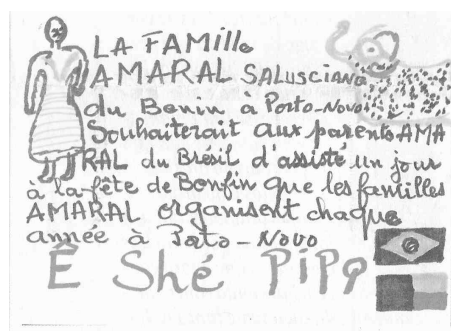 LA FAMille
AMARAL SALUSCIANO
du Benin a Porto-Novo
Souhaiterait aux parents AMA
RAL du Brésil d'assisté un jour
à la fête de Bonfin que les familles
AMARAL organisent chaque
année à Porto-Novo
Ê Shé PiPO